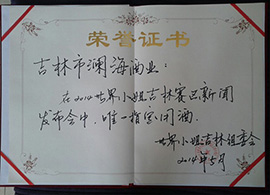 荣誉证书
吉林市澜海商业：
在2014世界小姐吉林赛区新闻
发布会中，唯一指定用酒。
世界小姐吉林组委会
2014年5月